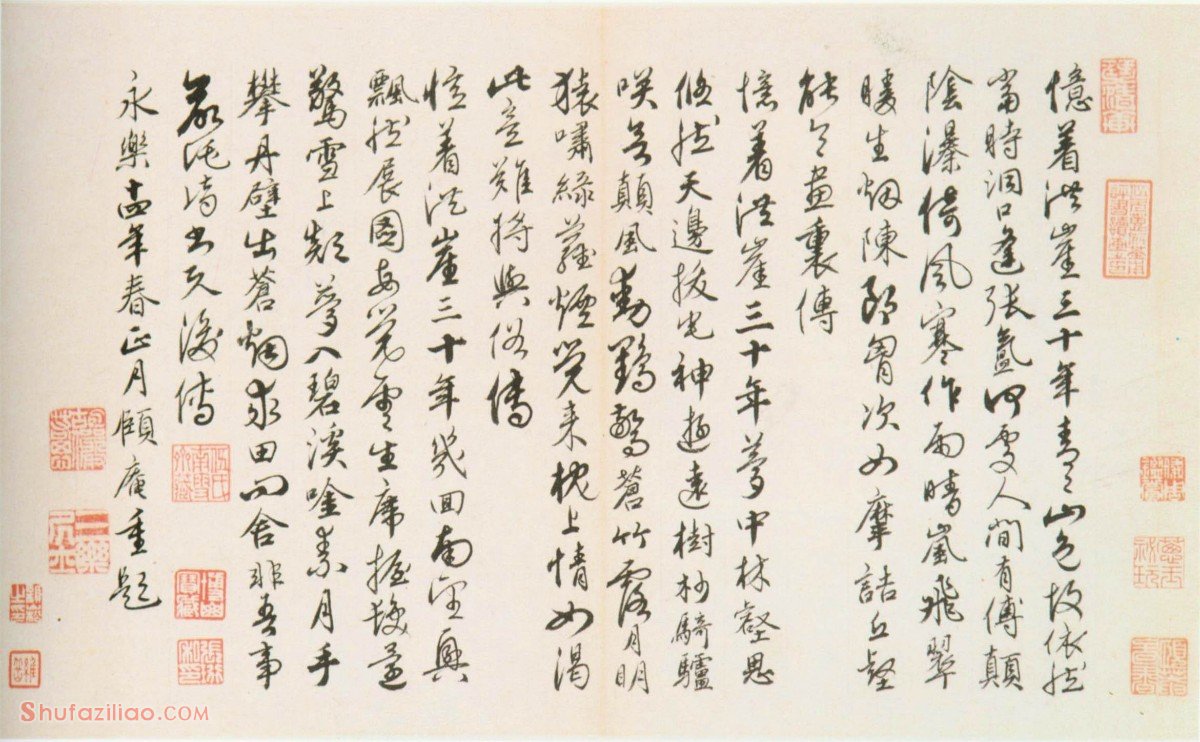 憶着洪崖三十年青々山色故依然
當時洞口逢張氳何處人間有傅顛
陰瀑倚風寒作雨晴嵐飛翠
暖生烟陳郎胸次如摩詰丘壑
能令畫裏傳
憶着洪崖三十年夢中林壑思
悠然天邊拔宅神遊遠樹杪騎驢
咲
顛風動鶴驚蒼竹露月明
猿嘯綠蘿煙覺來枕上情如渴
此意難將與俗傳
憶着洪崖三十年幾回南望興
飄然展圖每覺雲生席握
驚雪上顛夢入碧溪唫素月手
攀丹壁出蒼烟求田問舍非吾事
永樂十四年春正月頤庵重題
Shufaziliao.COM